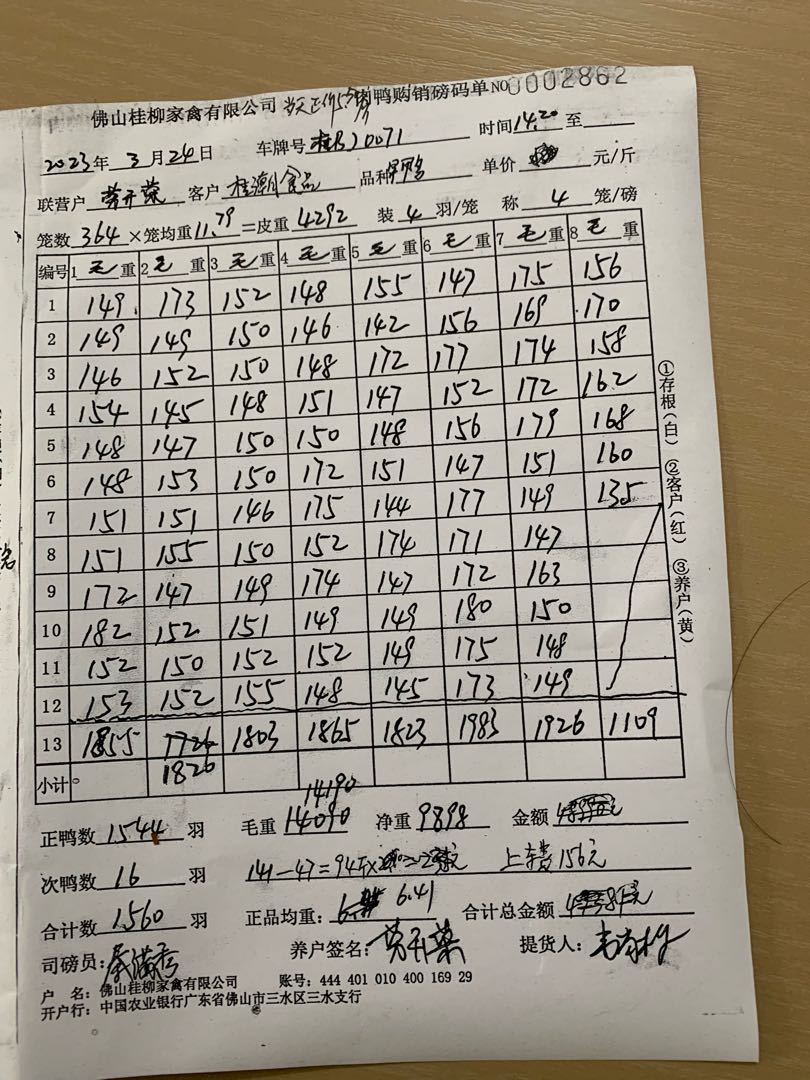 佛山桂柳家禽有限公司 肉鸭购销磅码单 NO 0002862
2023年 3月 24日 车牌号 桂BJ0071 时间 14:20 至
联营户 客户 桂潮食品 品种 单价 元/斤
笼数 364 ×笼均重 11.79 =皮重 4292 装 4 羽/笼 称 4 笼/磅
编号 1 毛 重 2 毛 重 3 毛 重 4 毛 重 5 毛 重 6 毛 重 7 毛 重 8 毛 重
1 149 173 152 148 155 147 175 156
2 149 149 150 146 142 156 169 170
3 146 152 150 148 172 177 174 158
4 154 145 148 151 147 152 172 162
5 148 147 150 150 148 156 179 168
6 148 153 150 172 151 147 151 160
7 151 151 146 175 144 177 149 135
8 151 155 150 152 174 171 147
9 172 147 149 174 147 172 163
10 182 152 151 149 149 180 150
11 152 150 152 152 149 175 148
12 153 152 155 148 145 173 149
13 1855 1726 1803 1865 1823 1983 1926 1109
小计 1826
14190
正鸭数 1544 羽 毛重 14090 净重 9898 金额
次鸭数 16 羽 141-47=94斤× 上车费 156元
合计数 1560 羽 正品均重： 6.41 合计总金额
司磅员： 养户签名： 提货人：
户 名：佛山桂柳家禽有限公司 账号：444 401 010 400 169 29
开户行：中国农业银行广东省佛山市三水区三水支行
①存根（白） ②客户（红） ③养户（黄）